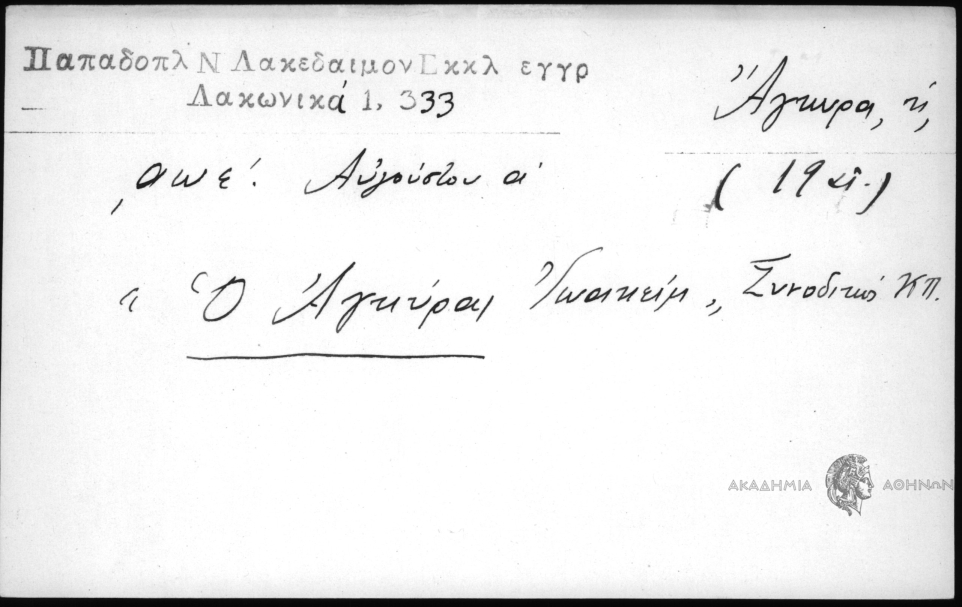 Παπαδοπλ Ν Λακεδαιμον Εκκλ εγγρ
Λακωνικά 1, 333
Ἄγκυρα, ἡ,
͵αωε΄. Αὐγούστου α΄
(19 αἰ.)
" Ὁ Ἀγκύρας Ἰωακείμ ", Συνοδικός ΚΠ.
ΑΚΑΔΗΜΙΑ ΑΘΗΝΩΝ